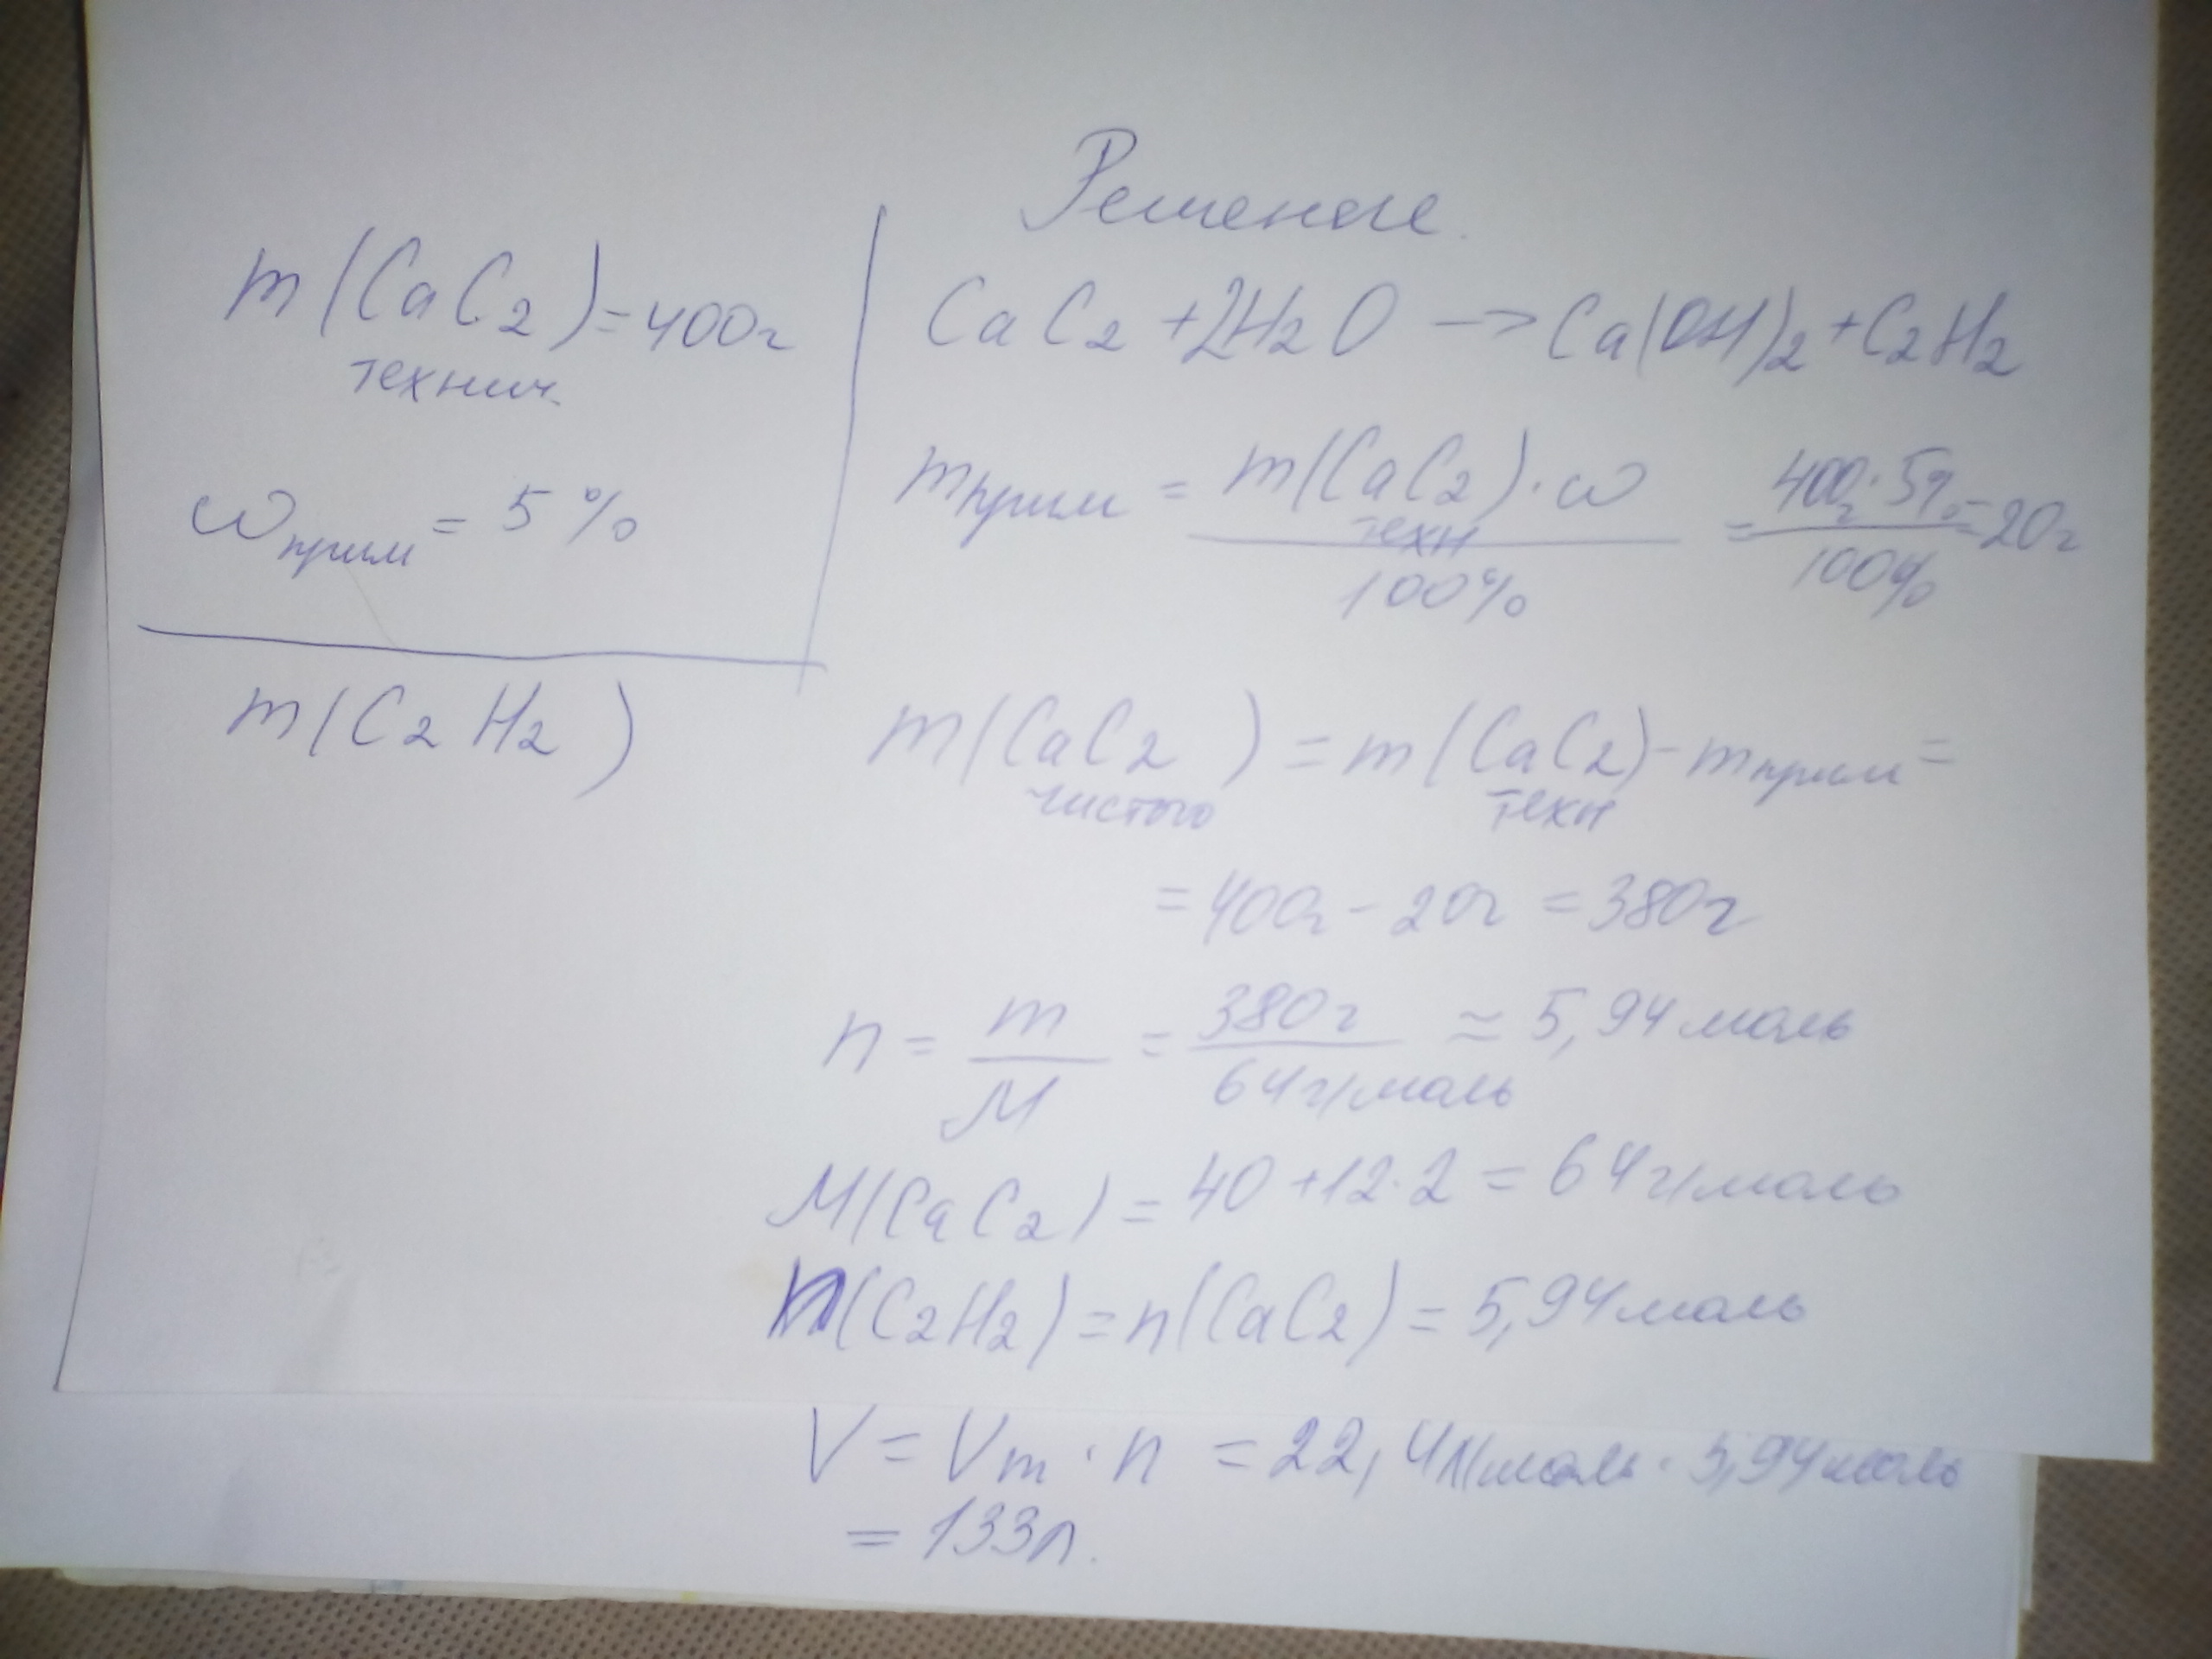 Решение.
m(CaC2)=400г
технич.
ω прим = 5 %
m(C2H2)
CaC2 + 2H2O -> Ca(OH)2 + C2H2
m прим = m(CaC2) техн · ω / 100% = 400г · 5% / 100% = 20г
m(CaC2) чистого = m(CaC2) техн - m прим =
= 400г - 20г = 380г
n = m / M = 380г / 64г/моль ≈ 5,94моль
M(CaC2) = 40 + 12·2 = 64г/моль
n(C2H2) = n(CaC2) = 5,94моль
V = Vm · n = 22,4л/моль · 5,94моль
= 133л.